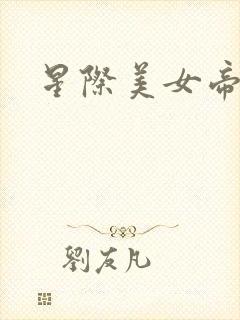 星際美女帝
劉友凡